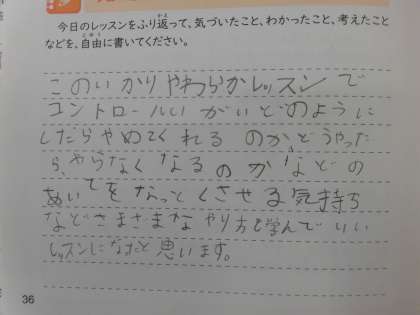 今日のレッスンをふり返って、気づいたこと、わかったこと、考えたこと
などを、自由に書いてください。
このいかりやわらかレッスンで
コントロールいがいどのように
しだらやめてくれるのかどうやった
ら、やらなくなるのかなどの
あいてをなっとくさせる気持ち
などさまざまなやり方も学んでいい
レッスンになたと思います。
36